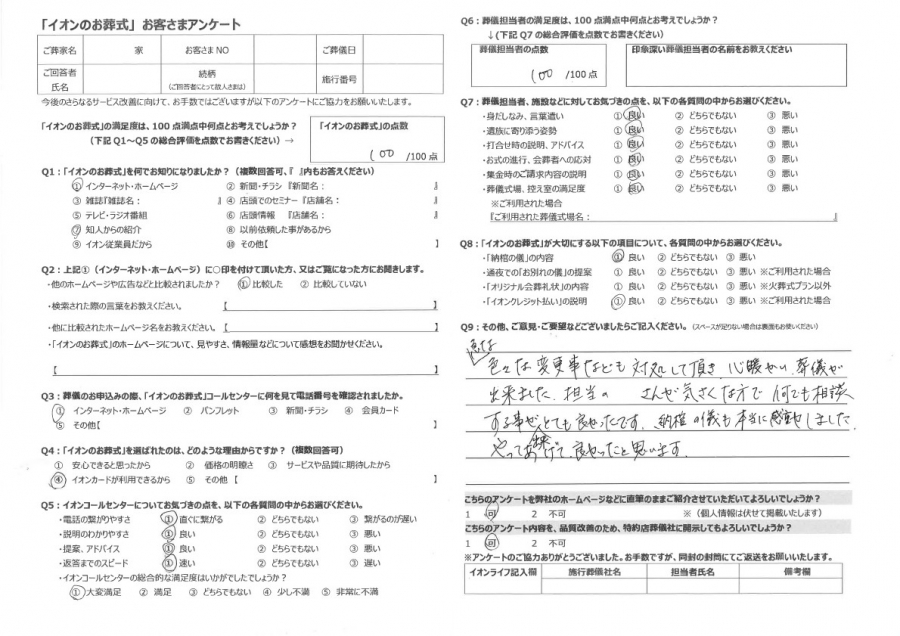 「イオンのお葬式」お客さまアンケート
ご葬家名 家 お客さまNO ご葬儀日
ご回答者氏名 続柄(ご回答者にとって故人さまは) 施行番号
今後のさらなるサービス改善に向けて、お手数ではございますが以下のアンケートにご協力をお願いいたします。
「イオンのお葬式」の満足度は、100点満点中何点とお考えでしょうか?
(下記Q1~Q5の総合評価を点数でお書きください)→
「イオンのお葬式」の点数
100 /100点
Q1:「イオンのお葬式」を何でお知りになりましたか?(複数回答可、『 』内もお答えください)
① インターネット・ホームページ ② 新聞・チラシ『新聞名: 』
③ 雑誌『雑誌名: 』 ④ 店頭でのセミナー『店舗名: 』
⑤ テレビ・ラジオ番組 ⑥ 店頭情報 『店舗名: 』
⑦ 知人からの紹介 ⑧ 以前依頼した事があるから
⑨ イオン従業員だから ⑩ その他【 】
Q2:上記①(インターネット・ホームページ)に○印を付けて頂いた方、又はご覧になった方にお聞きします。
・他のホームページや広告などと比較されましたか? ① 比較した ② 比較していない
・検索された際の言葉をお教えください。 【 】
・他に比較されたホームページ名をお教えください。【 】
・「イオンのお葬式」のホームページについて、見やすさ、情報量などについて感想をお聞かせください。
【 】
Q3:葬儀のお申込みの際、「イオンのお葬式」コールセンターに何を見て電話番号を確認されましたか。
① インターネット・ホームページ ② パンフレット ③ 新聞・チラシ ④ 会員カード
⑤ その他【 】
Q4:「イオンのお葬式」を選ばれたのは、どのような理由からですか?(複数回答可)
① 安心できると思ったから ② 価格の明瞭さ ③ サービスや品質に期待したから
④ イオンカードが利用できるから ⑤ その他【 】
Q5:イオンコールセンターについてお気づきの点を、以下の各質問の中からお選びください。
・電話の繋がりやすさ ① 直ぐに繋がる ② どちらでもない ③ 繋がるのが遅い
・説明のわかりやすさ ① 良い ② どちらでもない ③ 悪い
・提案、アドバイス ① 良い ② どちらでもない ③ 悪い
・返答までのスピード ① 速い ② どちらでもない ③ 遅い
・イオンコールセンターの総合的な満足度はいかがでしたでしょうか?
① 大変満足 ② 満足 ③ どちらでもない ④ 少し不満 ⑤ 非常に不満
Q6:葬儀担当者の満足度は、100点満点中何点とお考えでしょうか?
↓(下記Q7の総合評価を点数でお書きください)
葬儀担当者の点数 印象深い葬儀担当者の名前をお教えください
100 /100点
Q7:葬儀担当者、施設などに対してお気づきの点を、以下の各質問の中からお選びください。
・身だしなみ、言葉遣い ① 良い ② どちらでもない ③ 悪い
・遺族に寄り添う姿勢 ① 良い ② どちらでもない ③ 悪い
・打合せ時の説明、アドバイス ① 良い ② どちらでもない ③ 悪い
・お式の進行、会葬者への応対 ① 良い ② どちらでもない ③ 悪い
・集金時のご請求内容の説明 ① 良い ② どちらでもない ③ 悪い
・葬儀式場、控え室の満足度 ① 良い ② どちらでもない ③ 悪い
※ご利用された場合
『ご利用された葬儀式場名: 』
Q8:「イオンのお葬式」が大切にする以下の項目について、各質問の中からお選びください。
・「納棺の儀」の内容 ① 良い ② どちらでもない ③ 悪い
・通夜での「お別れの儀」の提案 ① 良い ② どちらでもない ③ 悪い ※ご利用された場合
・「オリジナル会葬礼状」の内容 ① 良い ② どちらでもない ③ 悪い ※火葬式プラン以外
・「イオンクレジット払い」の説明 ① 良い ② どちらでもない ③ 悪い ※ご利用された場合
Q9:その他、ご意見・ご要望などございましたらご記入ください。(スペースが足りない場合は裏面もお使いください)
急な
色々な変更事なども対処して頂き、心暖かい、葬儀が
出来ました。担当の さんが気さくな方で何でも相談
する事がとても良かったです。納棺の儀も本当に感動しました
やってあげ出来て良かったと思います。
こちらのアンケートを弊社のホームページなどに直筆のままご紹介させていただいてよろしいでしょうか?
1 可 2 不可 ※(個人情報は伏せて掲載いたします)
こちらのアンケート内容を、品質改善のため、特約店葬儀社に開示してもよろしいでしょうか?
1 可 2 不可
※アンケートのご協力ありがとうございました。お手数ですが、同封の封筒にてご返送をお願いいたします。
イオンライフ記入欄 施行葬儀社名 担当者氏名 備考欄